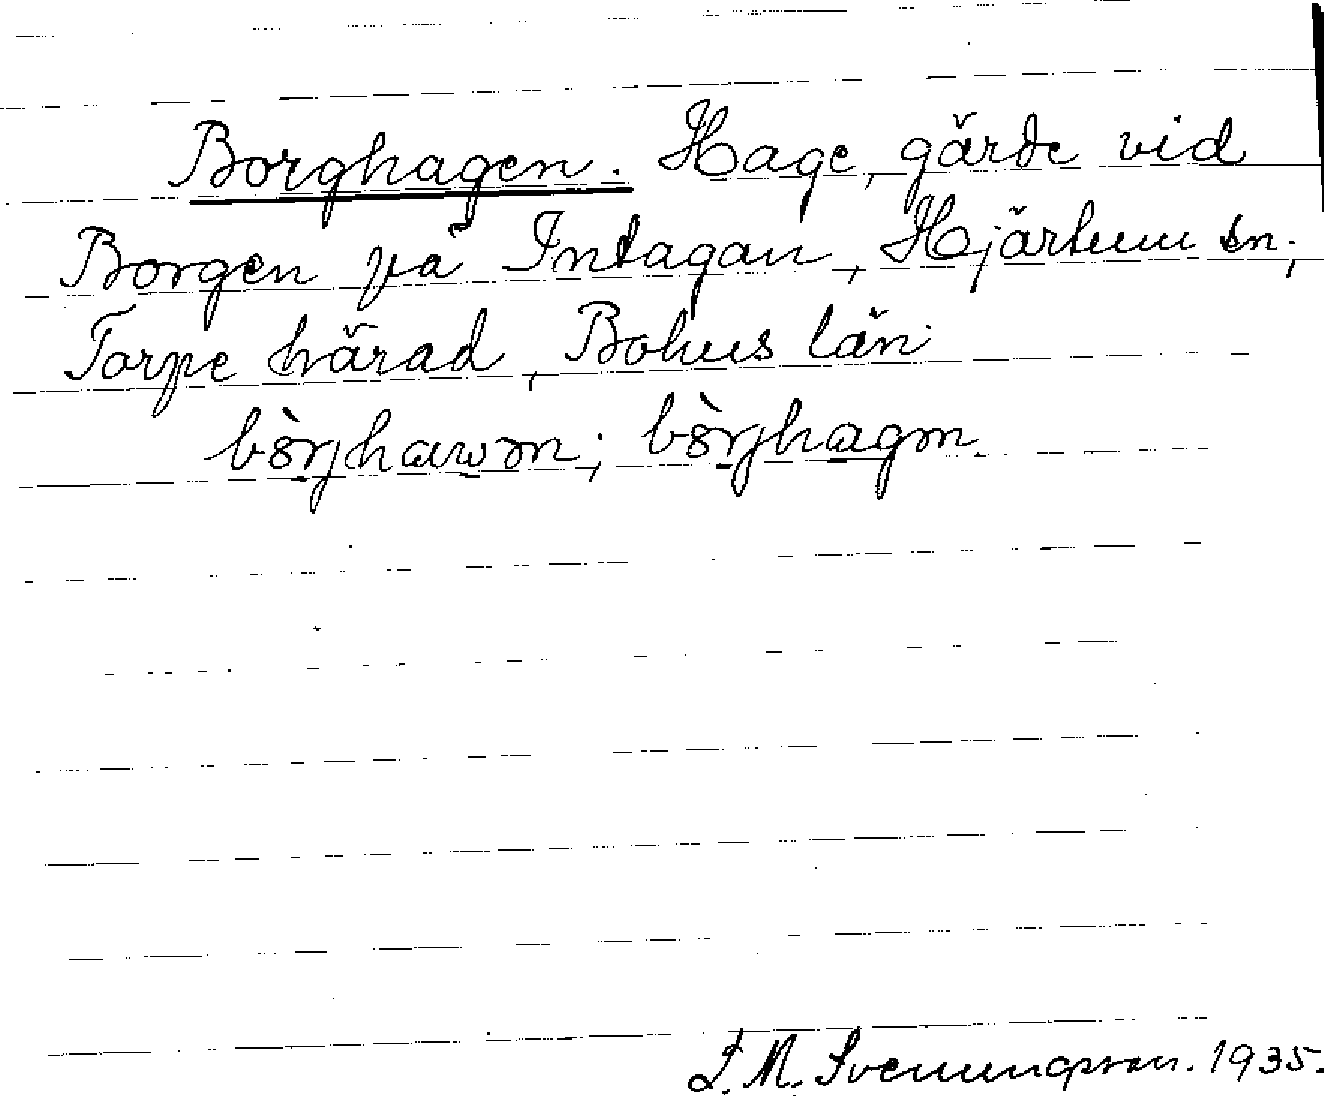 Borghagen. Hage, gärde vid
Borgen på Intagan, Hjärtum sn;
Torpe härad, Bohus län
J. M. Svenungsson. 1935.